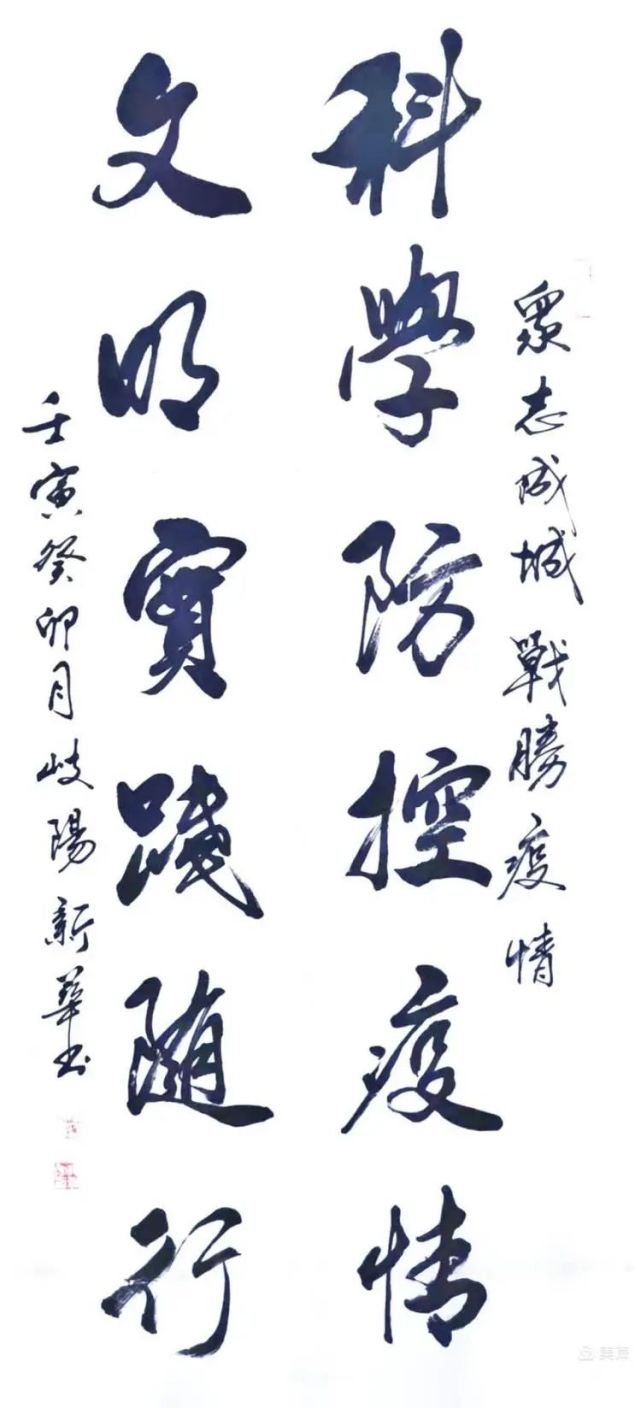 眾志成城戰勝疫情
科學防控疫情
文明實踐隨行
壬寅癸卯月岐陽新華书